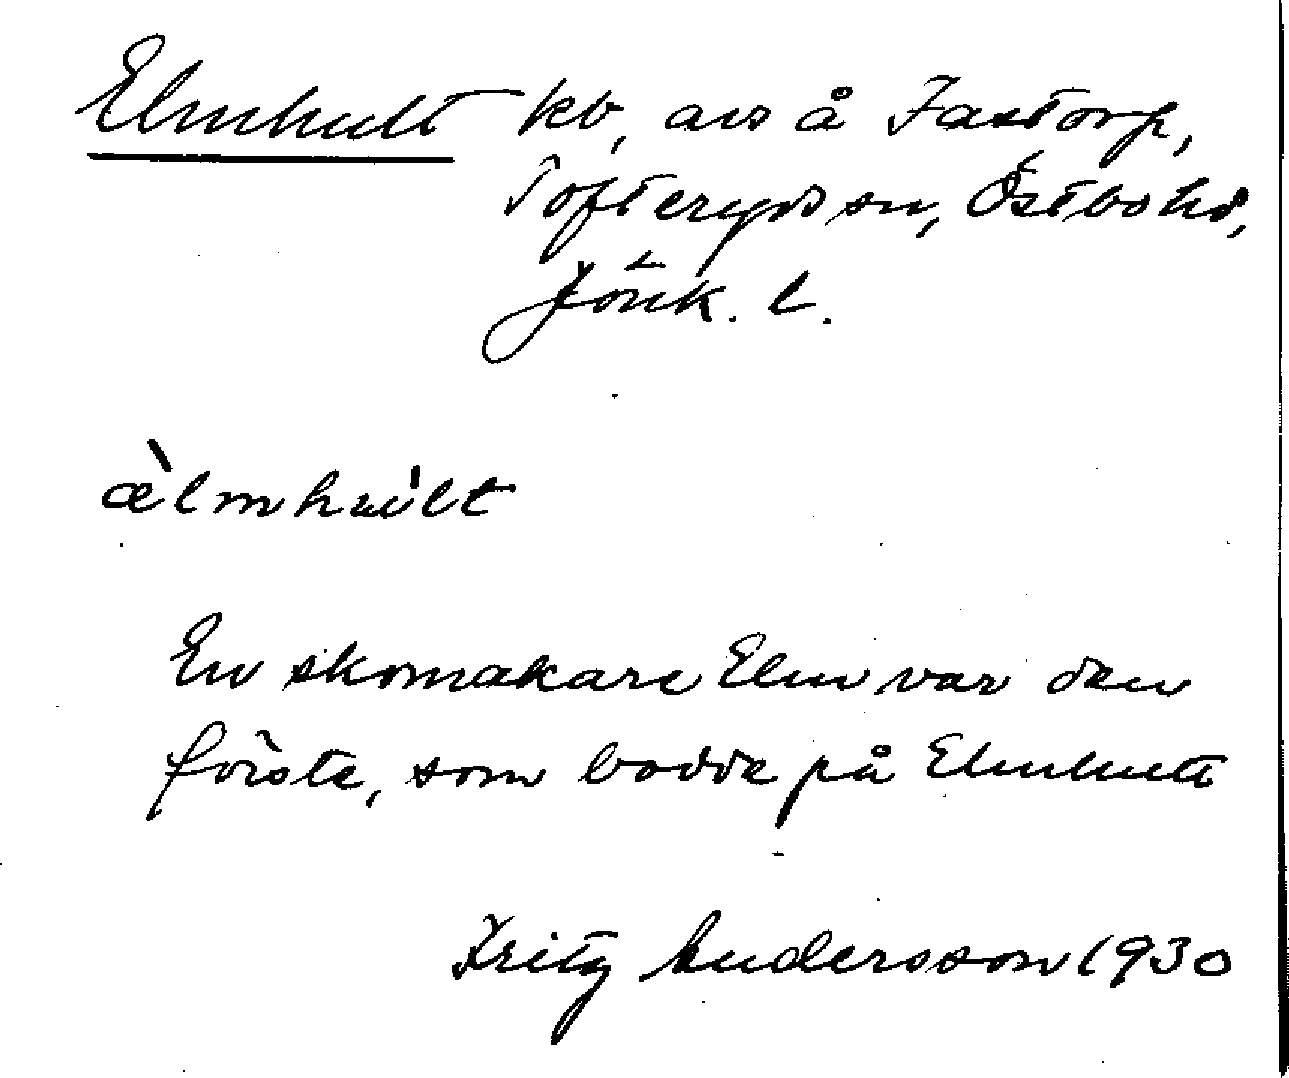 Elmhult kb, avs å Fastorp,
Tofteryds sn, Östbo hd,
Jönk. l.
æ̀lmhúlt
En skomakare Elm var den
förste, som bodde på Elmhult
Fritz Andersson 1930